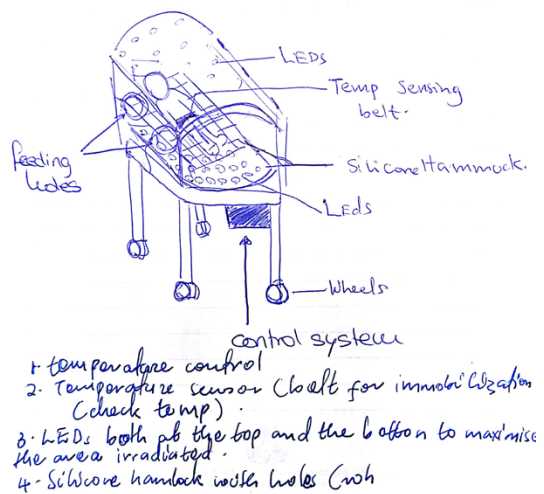 LEDs
Temp sensing
belt.
feeding
holes
Silicone Hammock.
Leds
Wheels
control system
1- temperature control
2- Temperature sensor (belt for immobilization
(check temp).
3- LEDs both at the top and the botton to maximise
the area irradiated.
4- Silicone hamlock with holes (